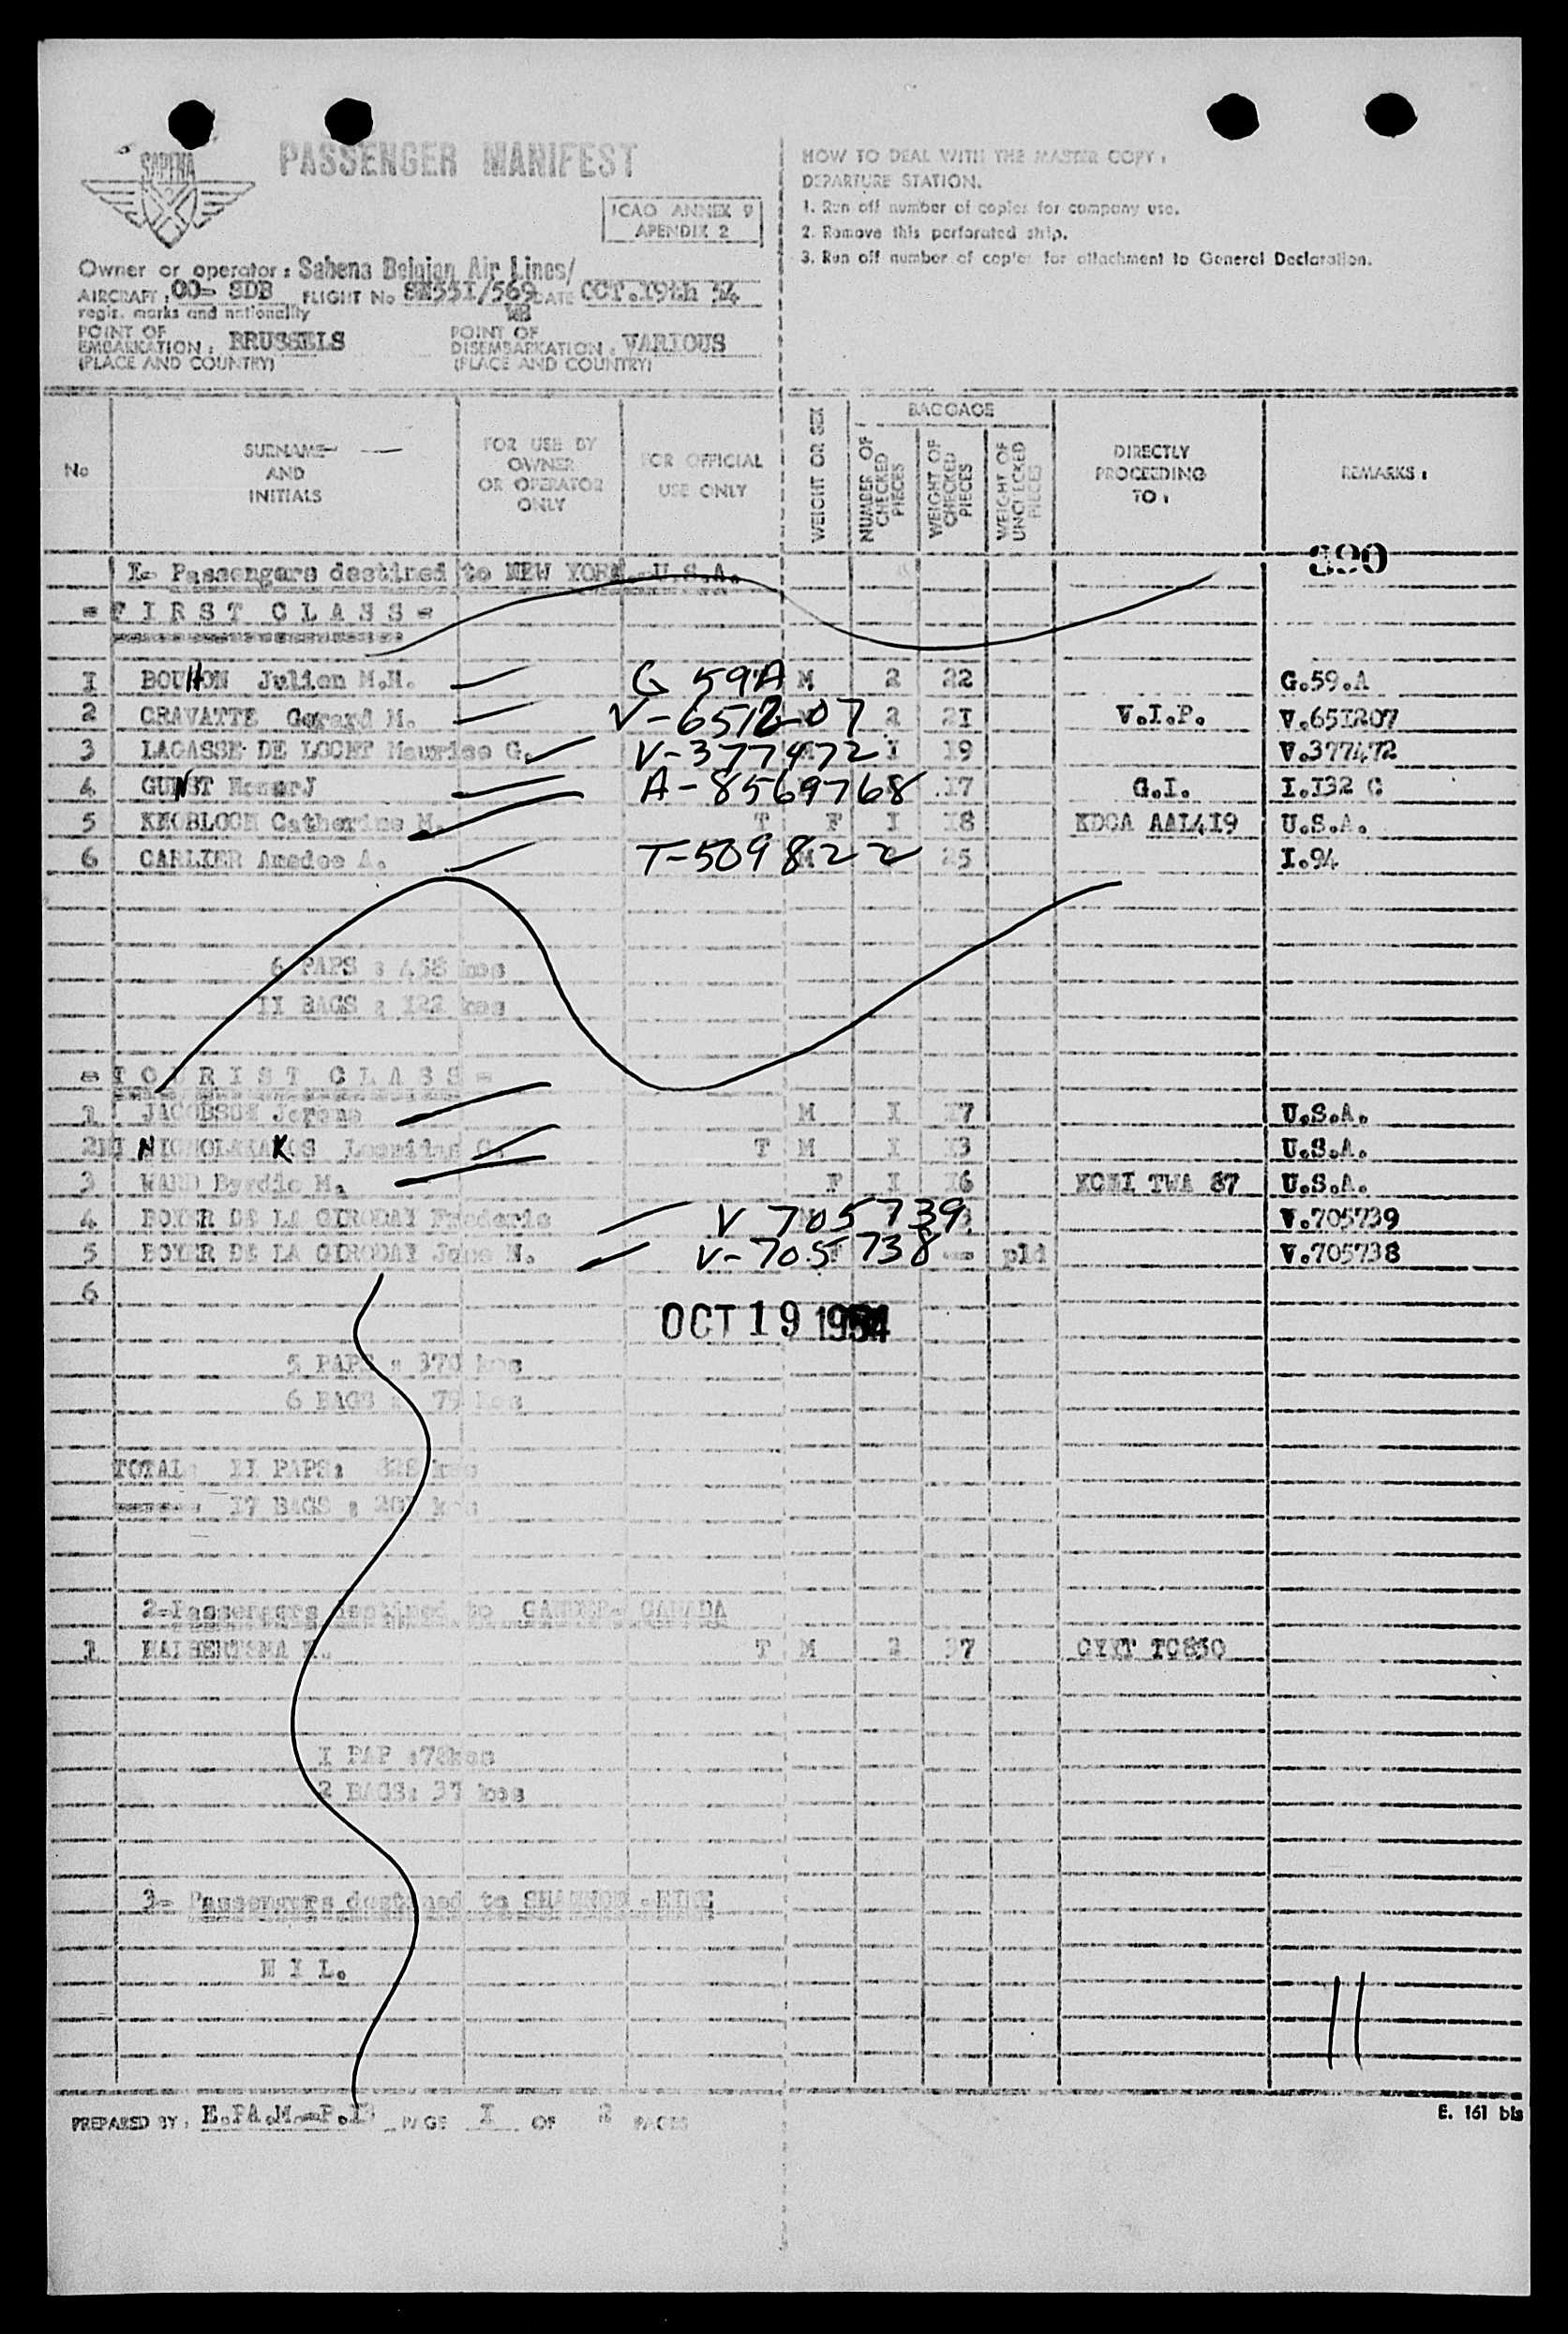 SABENA
PASSENGER MANIFEST
ICAO ANNEX 9
APENDIX 2
HOW TO DEAL WITH THE MASTER COPY :
DEPARTURE STATION.
1. Run off number of copies for company use.
2. Remove this perforated ship.
3. Run off number of copies for attachment to General Declaration.
Owner or operator : Sabena Belgian Air Lines/
AIRCRAFT : OO- SDB FLIGHT No SN551/569 DATE OCT.19th 54
regis. marks and nationality
POINT OF EMBARKATION : BRUSSELS POINT OF DISEMBARKATION : VARIOUS
(PLACE AND COUNTRY) (PLACE AND COUNTRY)
No SURNAME AND INITIALS FOR USE BY OWNER OR OPERATOR ONLY FOR OFFICIAL USE ONLY WEIGHT OR SEX BAGGAGE NUMBER OF CHECKED PIECES WEIGHT OF CHECKED PIECES WEIGHT OF UNCHECKED PIECES DIRECTLY PROCEEDING TO : REMARKS :
390
I- Passengers destined to NEW YORK.-U.S.A.
= F I R S T C L A S S =
1 BOUHON Julien M.H. G 59A M 2 22 G.59.A
2 CRAVATTE Gerard M. V-651207 2 21 V.I.P. V.651207
3 LACASSE DE LOCHT Maurice G. V-377472 I 19 V.377472
4 GUNST J A-8569768 17 G.I. I.132 C
5 KNOBLOCH Catherine M. T F I 18 KDCA AAL419 U.S.A.
6 CARLIER Amedee A. T-509822 M 25 I.94
6 PAPS : 458 kos
II BAGS : 122 kos
= T O U R I S T C L A S S =
1 JACOBSON M I 17 U.S.A.
2 T M I 13 U.S.A.
3 WARD Byrdie M. F I 26 KCHI TWA 87 U.S.A.
4 BOYER DE LA GIRODAY Frederic V 705739 V.705739
5 BOYER DE LA GIRODAY N. V-705738 F -- pld V.705738
6
OCT 19 1954
5 PAPS : 370 kos
6 BAGS : 79 kos
TOTAL: II PAPS: 828 kos
17 BAGS : 201 kos
2-Passengers destined to GANDER- CANADA
1 HALBERTSMA T M 2 37 CYYT TC830
I PAP :78kos
2 BAGS: 37 kos
3- Passengers destined to SHANNON -EIRE
N I L.
11
PREPARED BY : PAGE I OF 2 PAGES
E. 161 bis